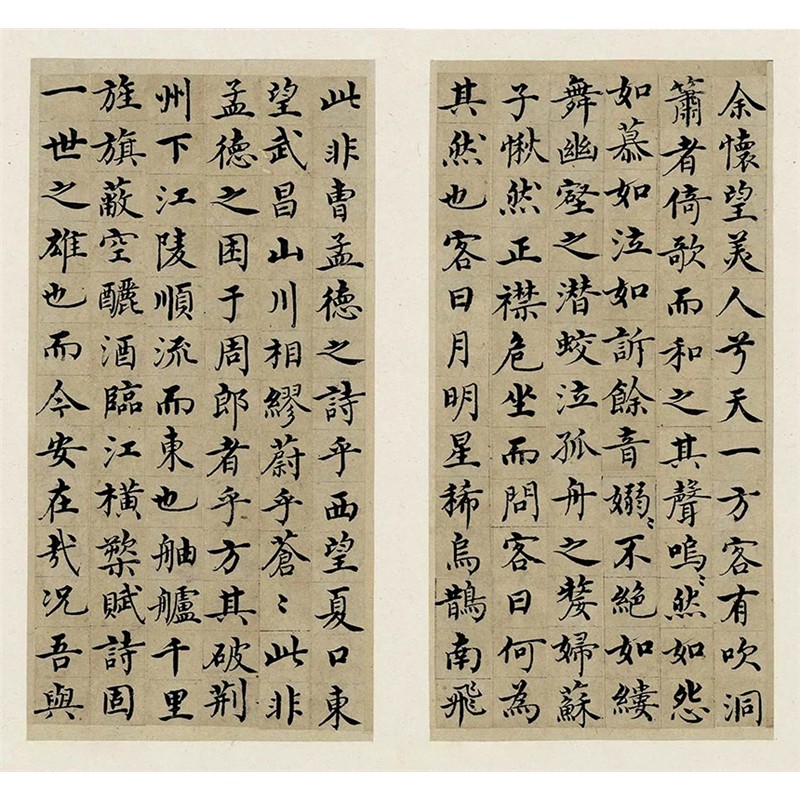 余懷望美人兮天一方客有吹洞
簫者倚歌而和之其聲嗚〻然如怨
如慕如泣如訴餘音嫋〻不絕如縷
舞幽壑之潛蛟泣孤舟之嫠婦蘇
子愀然正襟危坐而問客曰何為
其然也客曰月明星稀烏鵲南飛
此非曹孟德之詩乎西望夏口東
望武昌山川相繆蔚乎蒼〻此非
孟德之困于周郎者乎方其破荆
州下江陵順流而東也舳艫千里
旌旗蔽空釃酒臨江橫槊賦詩固
一世之雄也而今安在哉况吾與